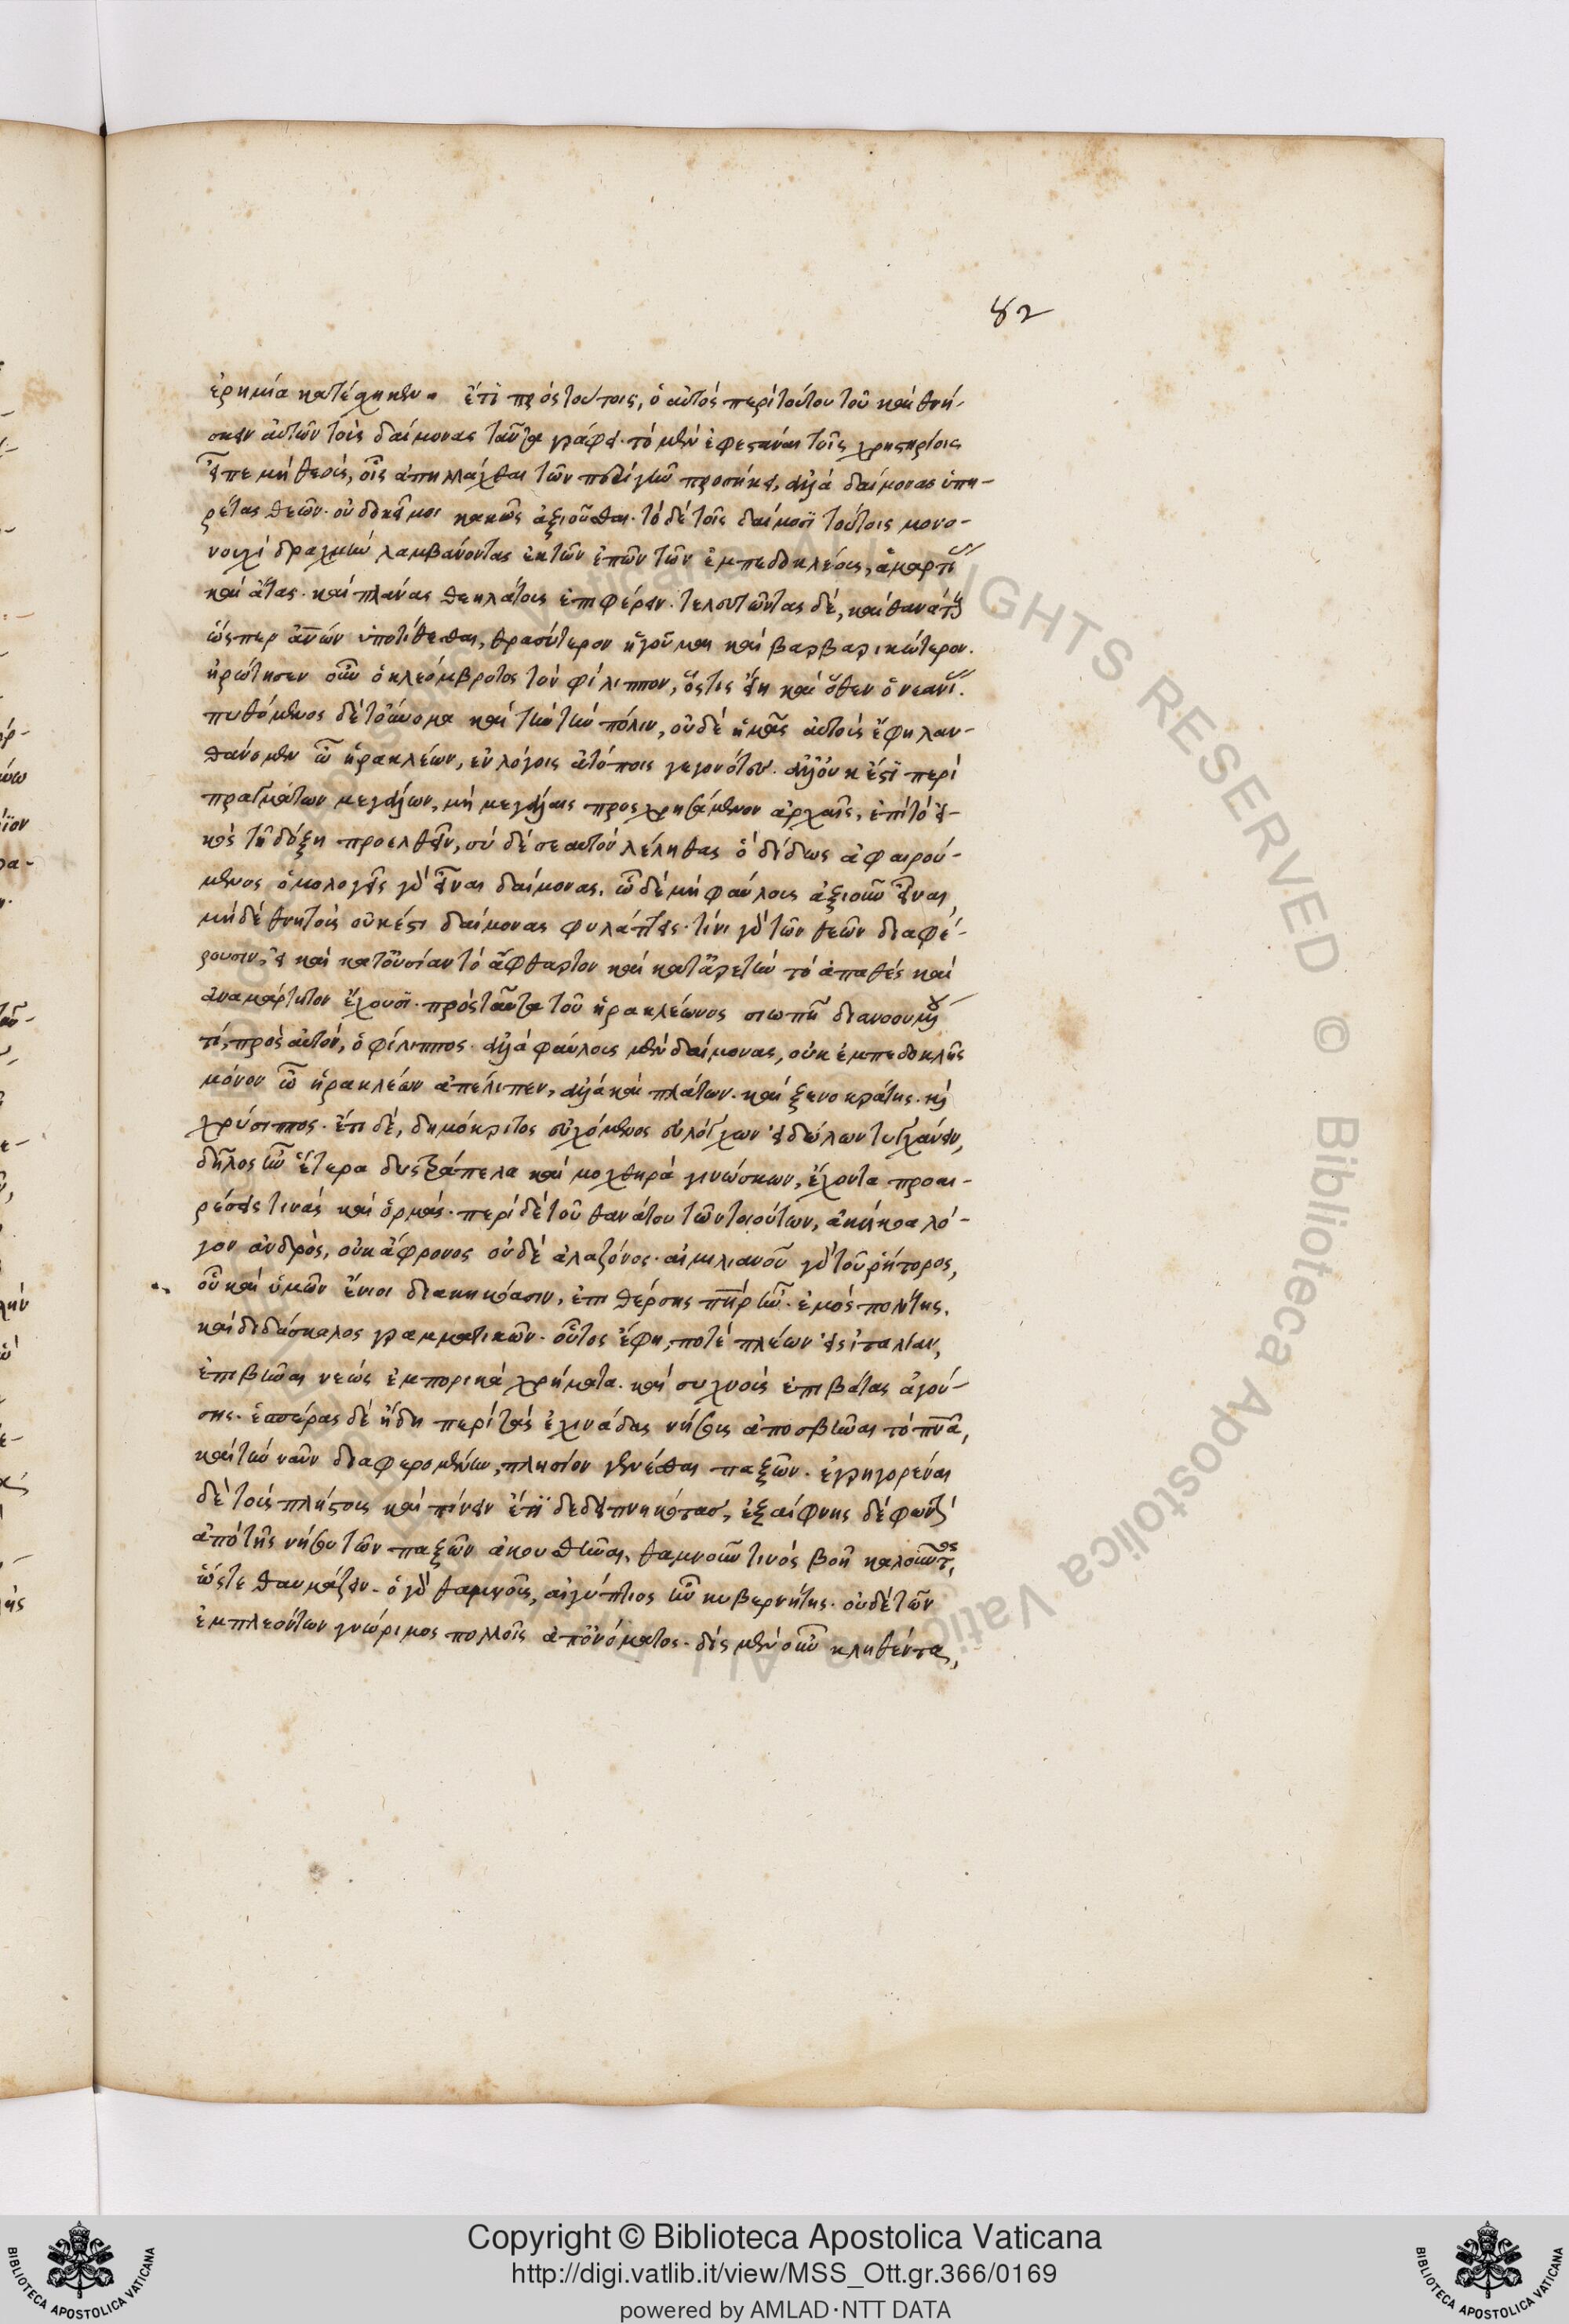 82
ἐρημία κατέσχηκεν. ἔτι πρὸς τούτοις, ὁ αὐτὸς περὶ τούτου τοῦ καὶ θνή-
σκειν αὐτῶν τοὺς δαίμονας ταῦτα γράφει. τὸ μὲν ἐφεστάναι τοῖς χρηστηρίοις
εἶπε μὴ θεοὺς, οἷς ἀπηλλάχθαι τῶν περὶ γῆν προσήκει, ἀλλὰ δαίμονας ὑπη-
ρέτας θεῶν. οὐ δοκεῖ μοι κακῶς ἀξιοῦσθαι. τὸ δὲ τοῖς δαίμοσι τούτοις μονο-
νουχὶ δραχμὴν λαμβάνοντας ἐκ τῶν ἐπῶν τῶν ἐμπεδοκλέους, ἁμαρτί
καὶ ἄτας. καὶ πλάνας θεηλάτους ἐπιφέρειν. τελευτῶντας δὲ, καὶ θανάτους
ὥσπερ ἀνῶν ὑποτίθεσθαι, θρασύτερον ἡγοῦμαι καὶ βαρβαρικώτερον.
ἠρώτησεν οὖν ὁ κλεόμβροτος τὸν φίλιππον, ὅστις εἴη καὶ ὅθεν ὁ νεανί.
πυθόμενος δὲ τοὔνομα καὶ τὴν τὴν πόλιν, οὐδὲ ἡμᾶς αὐτοὺς ἔφη λαν-
θάνομεν ὦ ἡρακλέων, ἐν λόγοις ἀτόποις γεγονότες. ἀλλ' οὐκ ἔστι περὶ
πραγμάτων μεγάλων, μὴ μεγάλαις προσχρησάμενον ἀρχαῖς, ἐπὶ τὸ εἰ-
κὸς τῇ δόξῃ προελθεῖν, σὺ δὲ σεαυτὸν λέληθας ὃ δίδως ἀφαιρού-
μενος ὁμολογεῖς γὰρ εἶναι δαίμονας. ὦ δὲ μὴ φαύλους ἀξιοῦν εἶναι,
μὴ δὲ θνητοὺς οὐκέτι δαίμονας φυλάττεις. τίνι γὰρ τῶν θεῶν διαφέ-
ρουσιν, εἰ καὶ κατ' οὐσίαν τὸ ἄφθαρτον καὶ κατ' ἀρετὴν τὸ ἀπαθὲς καὶ
ἀναμάρτητον ἔχουσι. πρὸς ταῦτα τοῦ ἡρακλέωνος σιωπῇ διανοουμένου
τί, πρὸς αὐτὸν, ὁ φίλιππος. ἀλλὰ φαύλους μὲν δαίμονας, οὐκ ἐμπεδοκλῆς
μόνον ὦ ἡρακλέων ἀπέλιπεν, ἀλλὰ καὶ πλάτων. καὶ ξενοκράτης. καὶ
χρύσιππος. ἔτι δὲ, δημόκριτος εὐχόμενος εὐλόγχων εἰδώλων τυγχάνειν,
δῆλος ἦν ἕτερα δυστράπελα καὶ μοχθηρὰ γινώσκων, ἔχοντα προαι-
ρέσεις τινὰς καὶ ὁρμάς. περὶ δὲ τοῦ θανάτου τῶν τοιούτων, ἀκήκοα λό-
γον ἀνδρὸς, οὐκ ἄφρονος οὐδὲ ἀλαζόνος. αἰμιλιανοῦ γὰρ τοῦ ῥήτορος,
οὗ καὶ ὑμῶν ἔνιοι διακηκόασιν, ἐπιθέρσης πῆρ ἦν. ἐμὸς πολίτης.
καὶ διδάσκαλος γραμματικῶν. οὗτος ἔφη, ποτὲ πλέων εἰς ἰταλίαν,
ἐπιβῆναι νεὼς ἐμπορικὰ χρήματα. καὶ συχνοὺς ἐπιβάτας ἀγού-
σης. ἑσπέρας δὲ ἤδη περὶ τὰς ἐχινάδας νήσους ἀποσβῆναι τὸ πνᾶ,
καὶ τὴν ναῦν διαφερομένην, πλησίον γενέσθαι παξῶν. ἐγρηγορέναι
δὲ τοὺς πλείστους καὶ πίνειν ἔτι δεδειπνηκότας, ἐξαίφνης δὲ φωνὴν
ἀπὸ τῆς νήσου τῶν παξῶν ἀκουσθῆναι, θαμνοῦν τινὸς βοῇ καλοῦντος,
ὥστε θαυμάζειν. ὁ γὰρ θαμνοῦς, αἰγύπτιος ἦν κυβερνήτης. οὐδὲ τῶν
ἐμπλεόντων γνώριμος πολλοῖς ἀπ' ὀνόματος. δὶς μὲν οὖν κληθέντα,
Copyright © Biblioteca Apostolica Vaticana
http://digi.vatlib.it/view/MSS_Ott.gr.366/0169
powered by AMLAD·NTT DATA